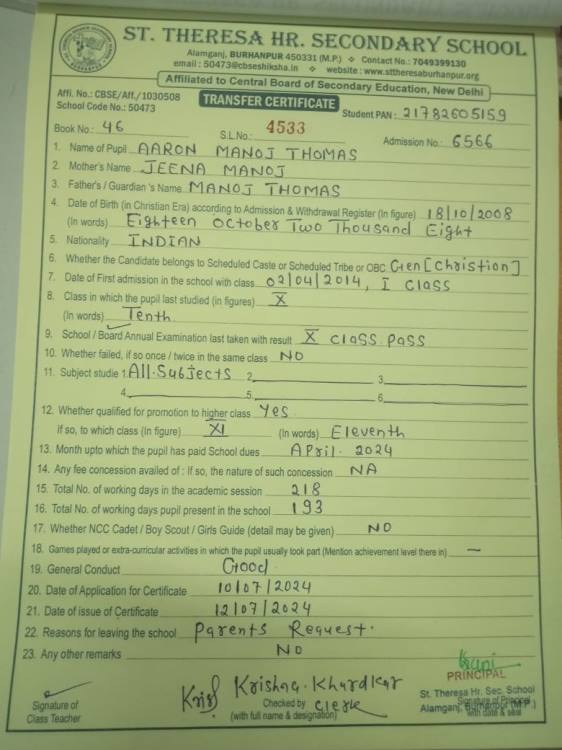 ST. THERESA HR. SECONDARY SCHOOL
Alamganj, BURHANPUR 450331 (M.P.) ❖ Contact No.: 7049399130
email : 50473@cbseshiksha.in ❖ website : www.sttheresaburhanpur.org
Affiliated to Central Board of Secondary Education, New Delhi
Affi. No.: CBSE/Aft./1030508
School Code No.: 50473
TRANSFER CERTIFICATE
Student PAN : 21782605159
Book No.: 46 S.L.No.: 4533 Admission No.: 6566
1. Name of Pupil AARON MANOJ THOMAS
2. Mother's Name JEENA MANOJ
3. Father's / Guardian 's Name MANOJ THOMAS
4. Date of Birth (in Christian Era) according to Admission & Withdrawal Register (In figure) 18/10/2008
(In words) Eighteen October Two Thousand Eight
5. Nationality INDIAN
6. Whether the Candidate belongs to Scheduled Caste or Scheduled Tribe or OBC Gen [Christion]
7. Date of First admission in the school with class 02/04/2014, I Class
8. Class in which the pupil last studied (in figures) X
(In words) Tenth
9. School / Board Annual Examination last taken with result X Class Pass
10. Whether failed, if so once / twice in the same class NO
11. Subject studie 1. All Subjects 2. 3.
4. 5. 6.
12. Whether qualified for promotion to higher class Yes
If so, to which class (In figure) XI (In words) Eleventh
13. Month upto which the pupil has paid School dues April. 2024
14. Any fee concession availed of : If so, the nature of such concession NA
15. Total No. of working days in the academic session 218
16. Total No. of working days pupil present in the school 193
17. Whether NCC Cadet / Boy Scout / Girls Guide (detail may be given) NO
18. Games played or extra-curricular activities in which the pupil usually took part (Mention achievement level there in) —
19. General Conduct Good
20. Date of Application for Certificate 10/07/2024
21. Date of issue of Certificate 12/07/2024
22. Reasons for leaving the school Parents Request.
23. Any other remarks NO
PRINCIPAL
St. Theresa Hr. Sec. School
Alamganj, Burhanpur (M.P.)
Signature of Principal
with date & seal
Krishna. Khardkar
Checked by Clerk
(with full name & designation)
Signature of
Class Teacher